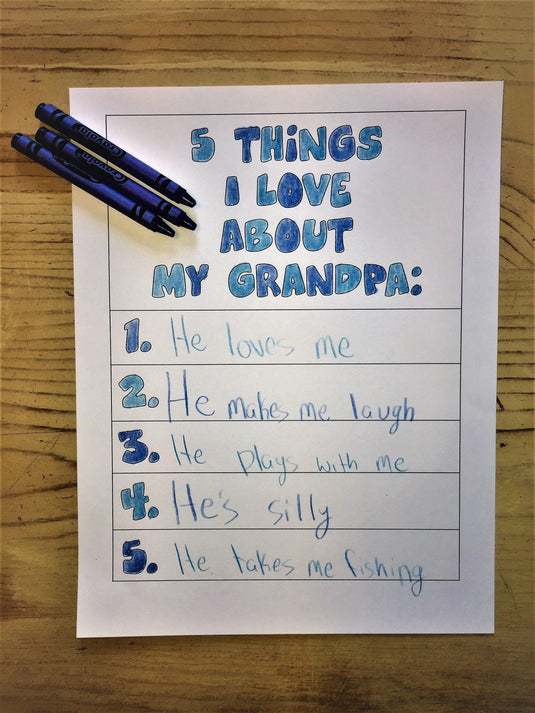 Crayola
Crayola
5 THiNGS
I LOVE
ABOUT
MY GRANDPA:
1. He loves me
2. He makes me laugh
3. He plays with me
4. He's silly
5. He takes me fishing